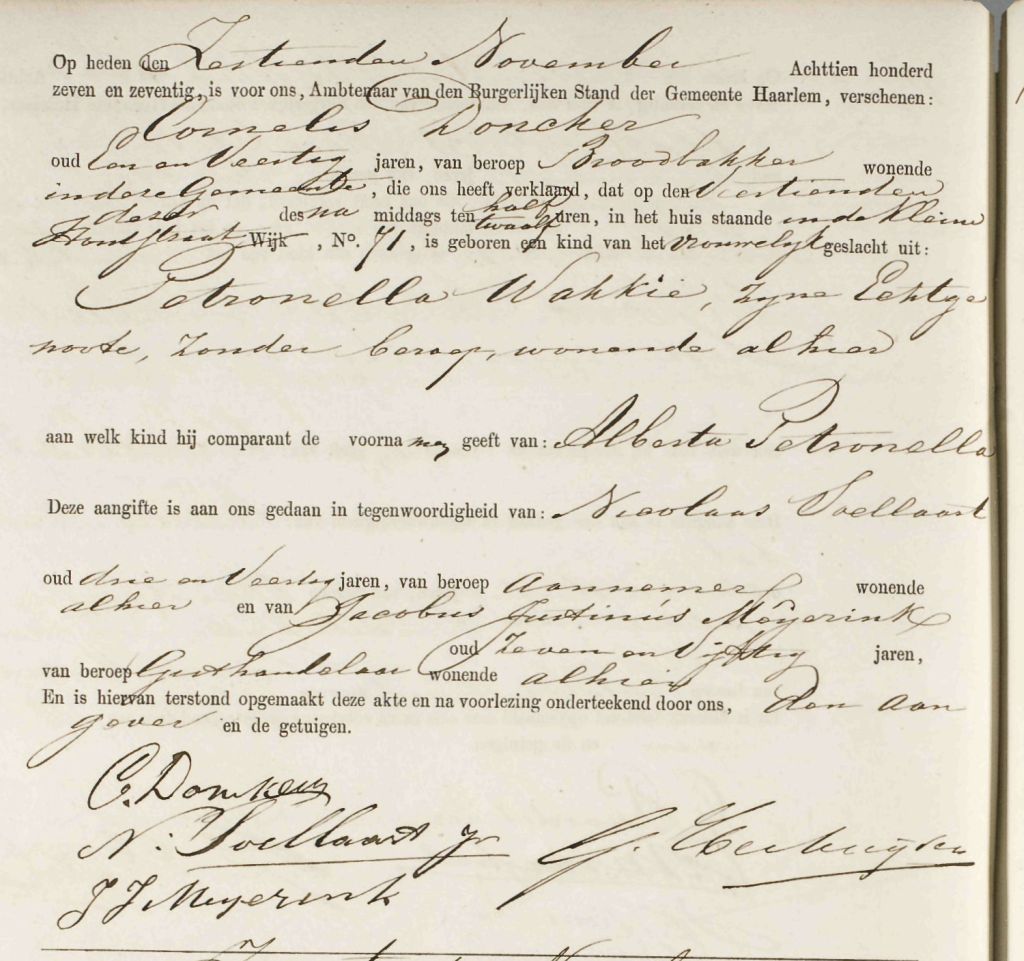 Op heden den Zestienden November Achttien honderd
zeven en zeventig, is voor ons, Ambtenaar van den Burgerlijken Stand der Gemeente Haarlem, verschenen:
Cornelis Doncker
oud Een en Veertig jaren, van beroep Broodbakker wonende
in deze Gemeente, die ons heeft verklaard, dat op den Veertienden
dezer des na middags ten half twaalf uren, in het huis staande in de Kleine
Houtstraat Wijk , No. 71, is geboren een kind van het vrouwelijk geslacht uit:
Petronella Wakkie, zyne Echtge
noote, zonder beroep, wonende alhier
aan welk kind hij comparant de voorna men geeft van: Alberta Petronella
Deze aangifte is aan ons gedaan in tegenwoordigheid van: Nicolaas Soellaart
oud drie en Veertig jaren, van beroep aannemer wonende
alhier en van Jacobus Justinus Meyerink
oud Zeven en Vijftig jaren,
van beroep wonende alhier
En is hiervan terstond opgemaakt deze akte en na voorlezing onderteekend door ons, den aan
gever en de getuigen.
C. Doncker
N: Soellaart Jr
J J Meyerink